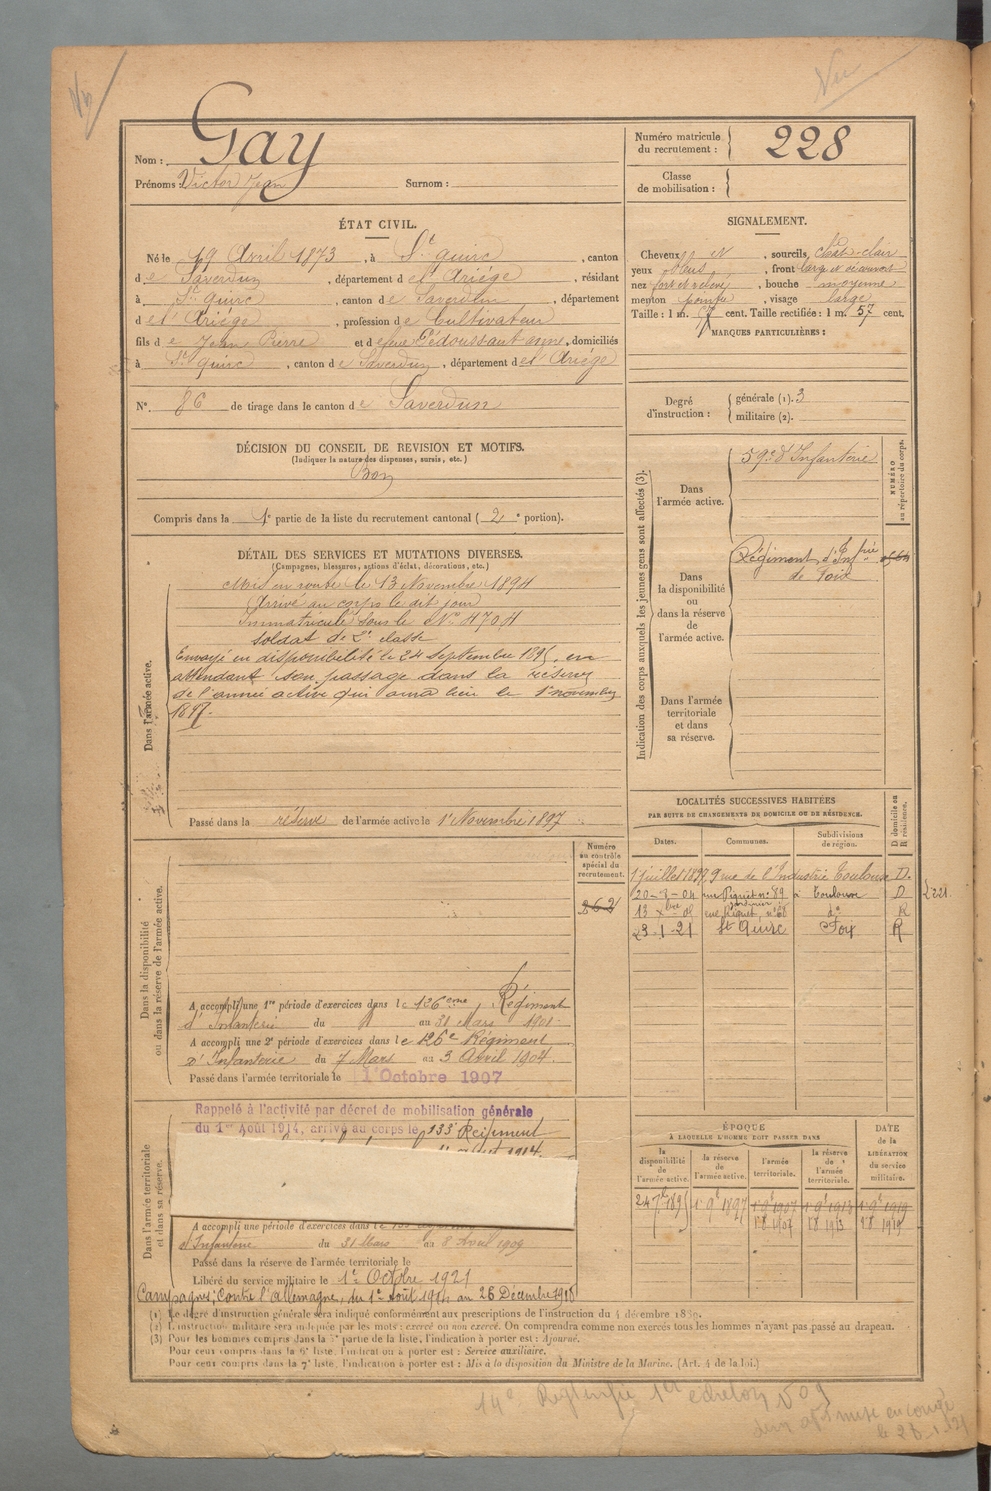 Vu
Nom : Gay
Prénoms : Victor Jean Surnom :
Numéro matricule du recrutement : 228
Classe de mobilisation :
ÉTAT CIVIL.
Né le 19 Avril 1873, à St quirc, canton
de Saverdun, département de l'Ariége, résidant
à St quirc, canton de Saverdun, département
de l'Ariége, profession de Cultivateur
fils de Jean Pierre et de, domiciliés
à St quirc, canton de Saverdun, département de l'Ariége
N° 86 de tirage dans le canton de Saverdun
SIGNALEMENT.
Cheveux, sourcils chat-clair
yeux bleus, front large et découvert
nez fort et relevé, bouche moyenne
menton pointu, visage large
Taille : 1 m. 57 cent. Taille rectifiée : 1 m. 57 cent.
MARQUES PARTICULIÈRES :
Degré d'instruction : générale (1). 3
militaire (2).
DÉCISION DU CONSEIL DE REVISION ET MOTIFS.
(Indiquer la nature des dispenses, sursis, etc.)
Bon
Compris dans la 1e partie de la liste du recrutement cantonal ( 2e portion).
DÉTAIL DES SERVICES ET MUTATIONS DIVERSES.
(Campagnes, blessures, actions d'éclat, décorations, etc.)
Dans l'armée active.
Mis en route le 13 Novembre 1894
Arrivé au corps le dit jour
Immatriculé sous le N° 4704
soldat de 2e classe
Envoyé en disponibilité le 24 Septembre 1895, en
attendant son passage dans la réserve
de l'armée active qui aura lieu le 1er novembre
1897.
Passé dans la réserve de l'armée active le 1er Novembre 1897
Indication des corps auxquels les jeunes gens sont affectés (3).
NUMÉRO au répertoire du corps.
Dans l'armée active.
59e d'Infanterie
Dans la disponibilité ou dans la réserve de l'armée active.
Régiment d'Infrie
de Foix
Dans l'armée territoriale et dans sa réserve.
LOCALITÉS SUCCESSIVES HABITÉES
PAR SUITE DE CHANGEMENTS DE DOMICILE OU DE RÉSIDENCE.
Dates. Communes. Subdivisions de région. D domicile ou R résidence.
1 juillet 1899 9 rue de l'Industrie Toulouse D.
20-3-04 rue Riquet n° 89 à Toulouse D
13 xbre 08 rue Riquet n° 68 d° R
23-1-21 St Quirc Foix R
221
Dans la disponibilité ou dans la réserve de l'armée active.
Numéro au contrôle spécial du recrutement.
262
A accompli une 1re période d'exercices dans le 126ème Régiment
d'Infanterie du 4 au 31 Mars 1901.
A accompli une 2e période d'exercices dans le 126e Régiment
D'Infanterie du 7 Mars au 3 Avril 1904.
Passé dans l'armée territoriale le 1er Octobre 1907
Dans l'armée territoriale et dans sa réserve.
Rappelé à l'activité par décret de mobilisation générale
du 1er Août 1914, arrivé au corps le 133e Régiment
1914.
A accompli une période d'exercices dans le
d'Infanterie du 31 Mars au 8 Avril 1909
Passé dans la réserve de l'armée territoriale le
Libéré du service militaire le 1er Octobre 1921
Campagnes; Contre l'allemagne, du 1er Août 1914 au 26 Décembre 1918
ÉPOQUE
À LAQUELLE L'HOMME DOIT PASSER DANS
la disponibilité de l'armée active. la réserve de l'armée active. l'armée territoriale. la réserve de l'armée territoriale.
DATE de la LIBÉRATION du service militaire.
24 7bre 1895 1er 9bre 1897 1er 9bre 1907 1er 9bre 1913 1er 9bre 1919
1er 8bre 1907 1er 8bre 1913 1er 8bre 1919
(1) Le degré d'instruction générale sera indiqué conformément aux prescriptions de l'instruction du 4 décembre 1889.
(2) L'instruction militaire sera indiquée par les mots : exercé ou non exercé. On comprendra comme non exercés tous les hommes n'ayant pas passé au drapeau.
(3) Pour les hommes compris dans la 5e partie de la liste, l'indication à porter est : Ajourné.
Pour ceux compris dans la 6e liste, l'indication à porter est : Service auxiliaire.
Pour ceux compris dans la 7e liste, l'indication à porter est : Mis à la disposition du Ministre de la Marine. (Art. 4 de la loi.)